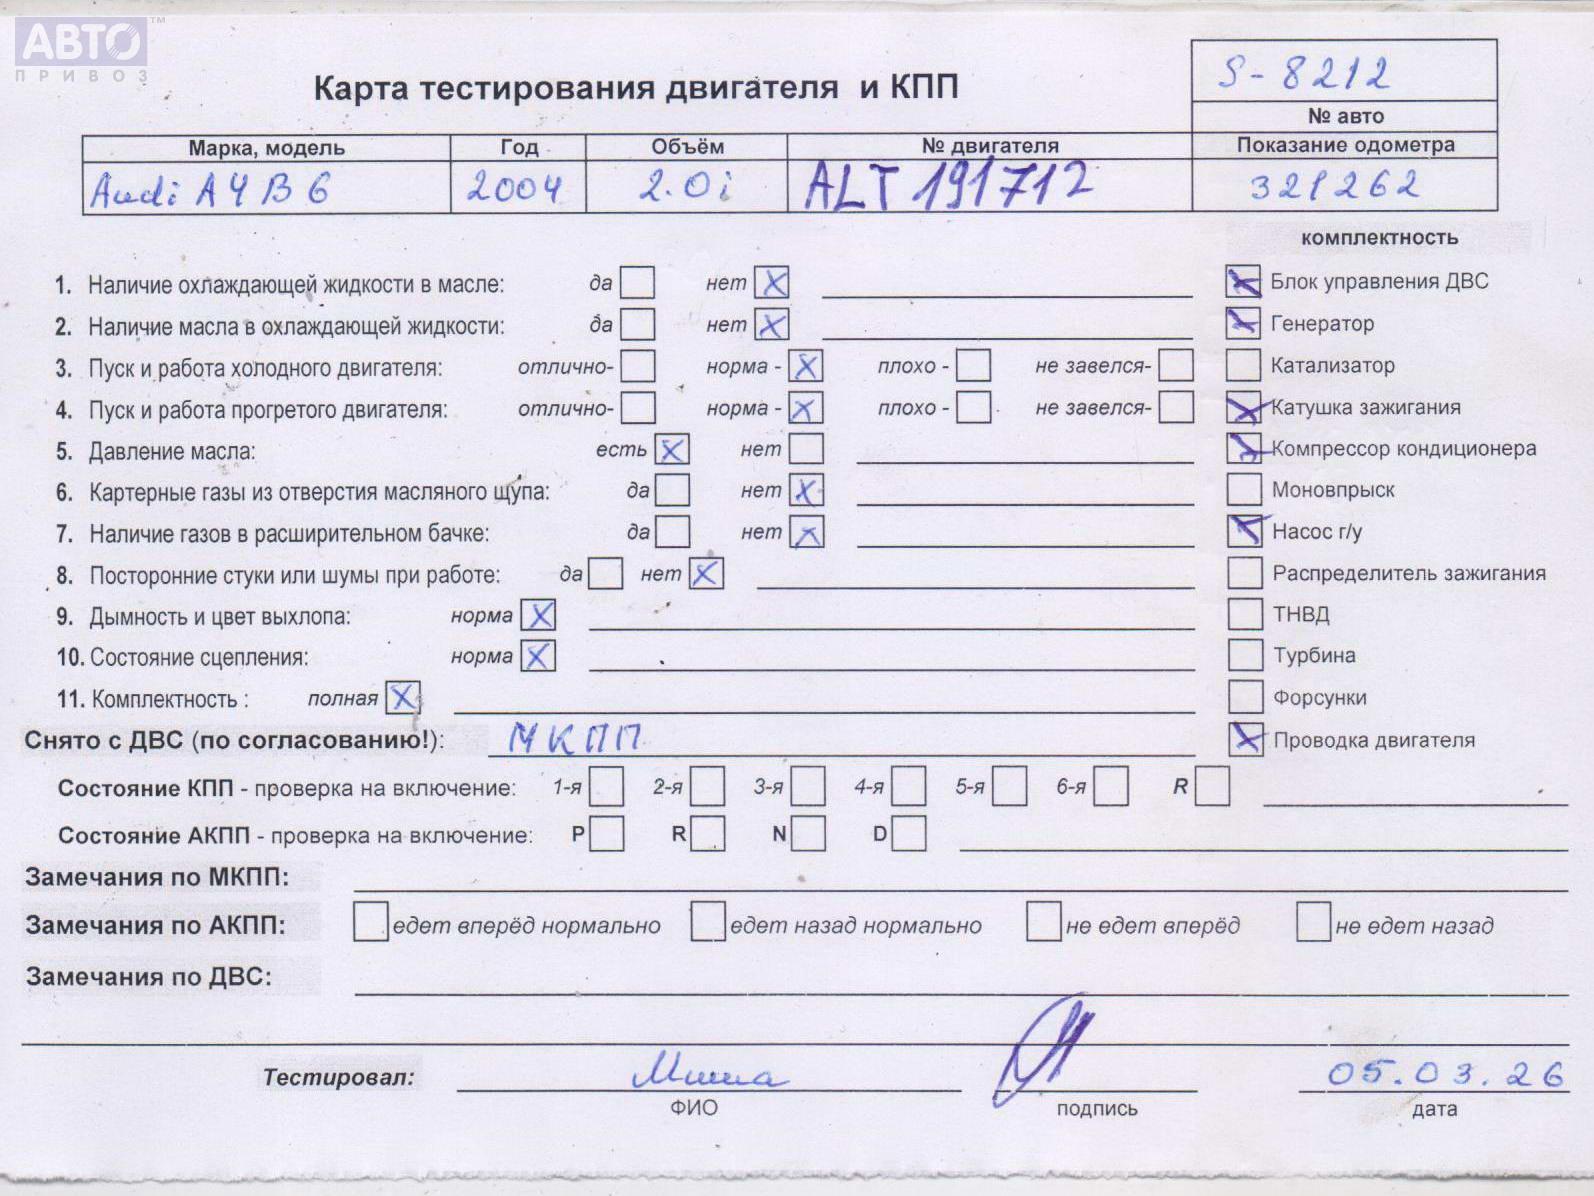 АВТО™
ПРИВОЗ
S-8212
Карта тестирования двигателя и КПП
№ авто
Марка, модель Год Объём № двигателя Показание одометра
Audi A4 B6 2004 2.0i ALT 191712 321262
комплектность
1. Наличие охлаждающей жидкости в масле: да нет X X Блок управления ДВС
2. Наличие масла в охлаждающей жидкости: да нет X X Генератор
3. Пуск и работа холодного двигателя: отлично- норма - X плохо - не завелся- Катализатор
4. Пуск и работа прогретого двигателя: отлично- норма - X плохо - не завелся- X Катушка зажигания
5. Давление масла: есть X нет X Компрессор кондиционера
6. Картерные газы из отверстия масляного щупа: да нет X Моновпрыск
7. Наличие газов в расширительном бачке: да нет X X Насос г/у
8. Посторонние стуки или шумы при работе: да нет X Распределитель зажигания
9. Дымность и цвет выхлопа: норма X ТНВД
10. Состояние сцепления: норма X Турбина
11. Комплектность : полная X Форсунки
Снято с ДВС (по согласованию!): МКПП X Проводка двигателя
Состояние КПП - проверка на включение: 1-я 2-я 3-я 4-я 5-я 6-я R
Состояние АКПП - проверка на включение: P R N D
Замечания по МКПП:
Замечания по АКПП: едет вперёд нормально едет назад нормально не едет вперёд не едет назад
Замечания по ДВС:
Тестировал: Миша 05.03.26
ФИО подпись дата